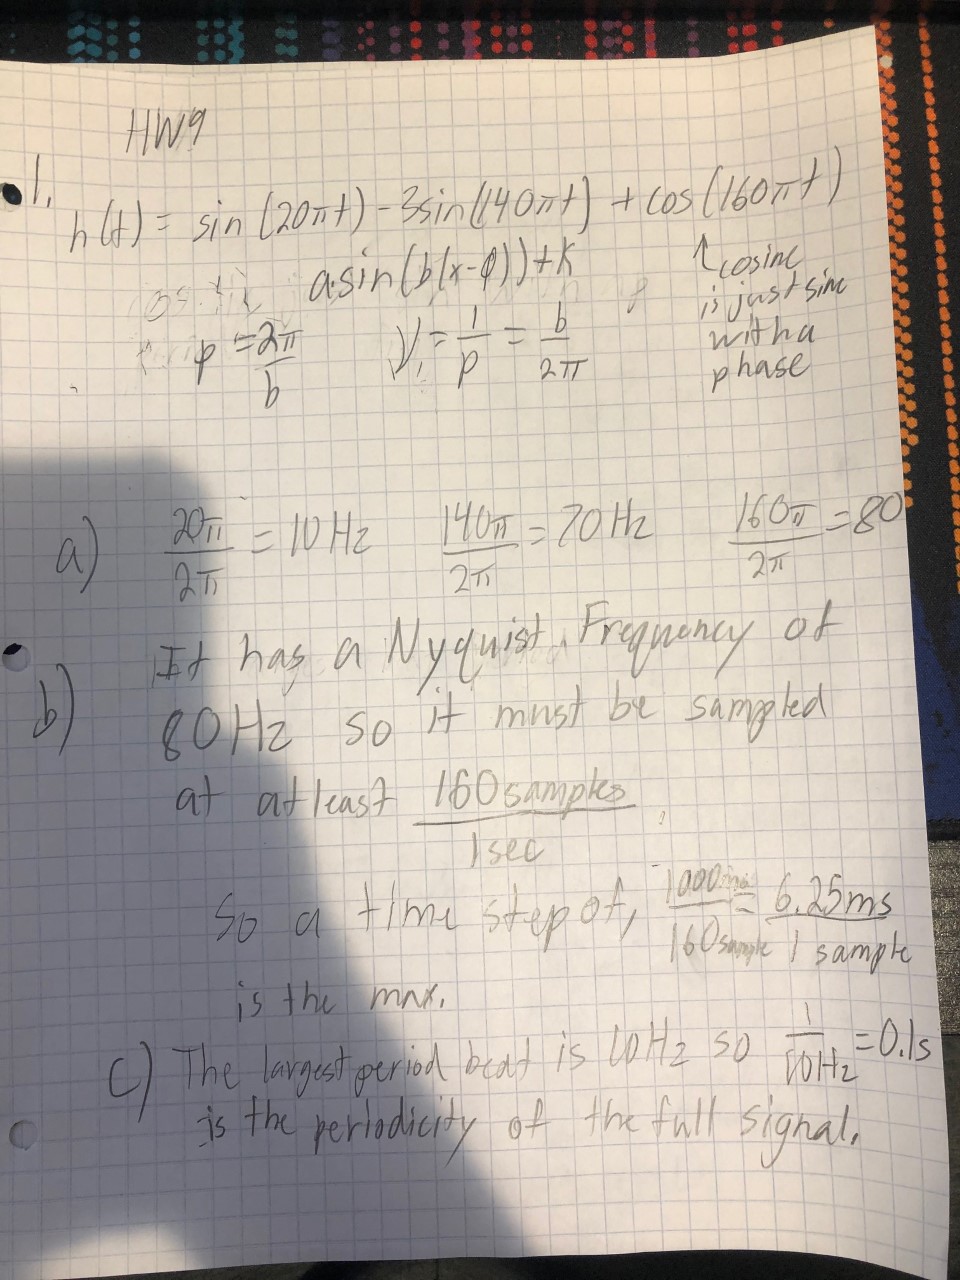 HW9
1.
h(t) = sin (20πt) - 3sin(140πt) + cos(160πt)
a sin(b(x-φ))+K
↑ cosine
is just sine
with a
phase
p = 2π/b
ν = 1/p = b/2π
a) 20π/2π = 10Hz 140π/2π = 70Hz 160π/2π = 80
b) It has a Nyquist Frequency of
80Hz so it must be sampled
at at least 160 samples / 1 sec
So a time step of, 1000ms/160 sample = 6.25ms / 1 sample
is the max.
c) The largest period beat is 10Hz so 1/10Hz = 0.1s
is the periodicity of the full signal.